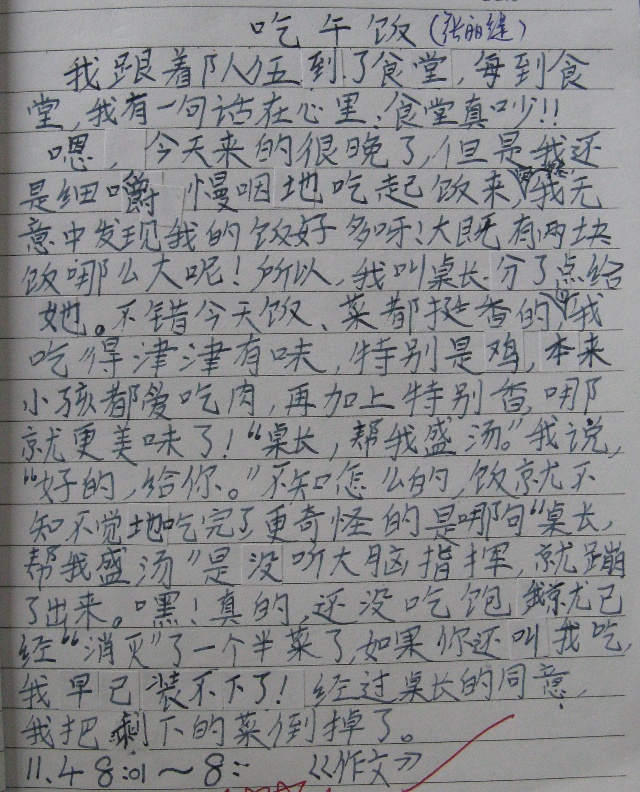 吃午饭(张丽缇)
我跟着队伍到了食堂,每到食
堂,我有一句话在心里:食堂真吵!!
嗯,今天来的很晚了,但是我还
是细嚼慢咽地吃起饭来,我无
意中发现我的饭好多呀!大既有两块
饭哪么大呢!所以,我叫桌长分了点给
她。不错今天饭、菜都挺香的,我
吃得津津有味,特别是鸡,本来
小孩都爱吃肉,再加上特别香,哪
就更美味了!“桌长,帮我盛汤。”我说,
“好的,给你。”不知怎么的,饭就不
知不觉地吃完了,更奇怪的是哪句“桌长,
帮我盛汤”是没听大脑指挥,就蹦
了出来。嘿!真的,还没吃饱我就已
经“消灭”了一个半菜了,如果你还叫我吃,
我早已装不下了!经过桌长的同意,
我把剩下的菜倒掉了。
11.4 8:01~8: 《作文》